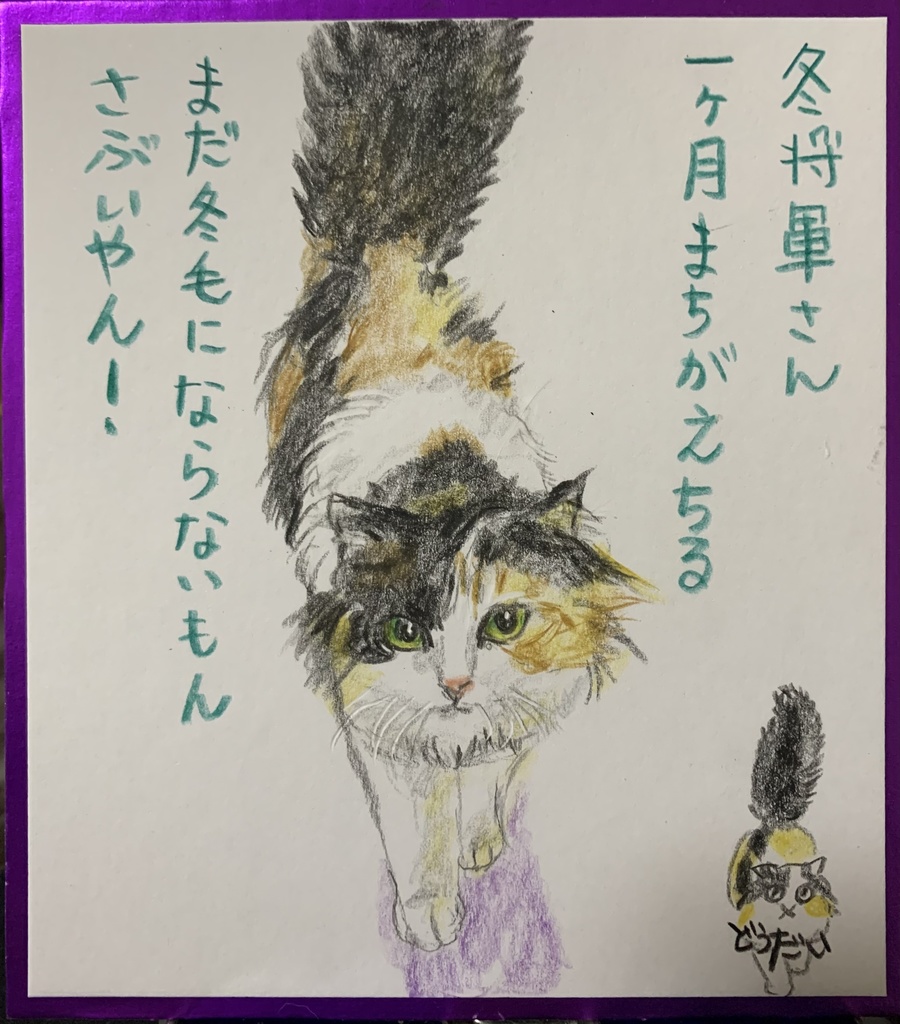 冬将軍さん
一ヶ月まちがえちる
まだ冬毛にならないもん
さぶいやん！
どうだい